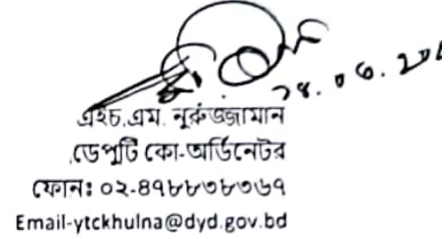 এইচ.এম. নুরুজ্জামান
ডেপুটি কো-অর্ডিনেটর
ফোনঃ ০২-৪৭৮৮৩৮৩৬৭
Email-ytckhulna@dyd.gov.bd